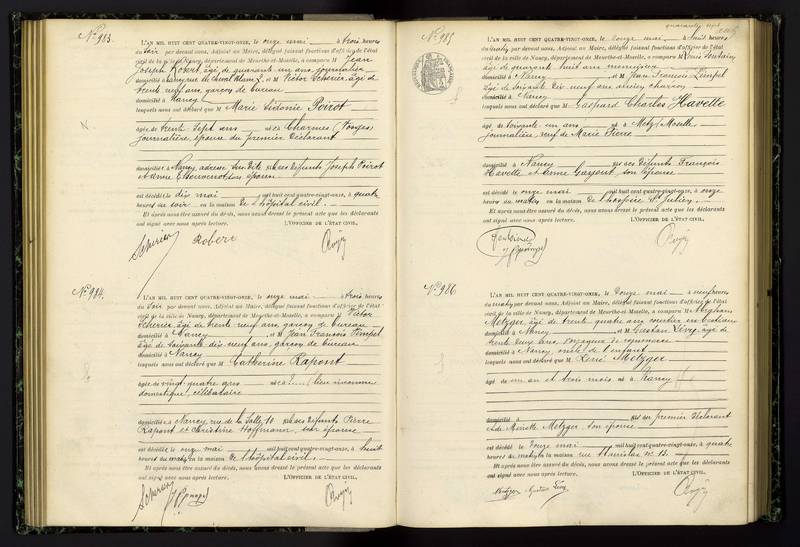 No 983.
L'AN MIL HUIT CENT QUATRE-VINGT-ONZE, le onze mai à trois heures
du soir par devant nous, Adjoint au Maire, délégué faisant fonctions d'officier de l'état
civil de la ville de Nancy, département de Meurthe-et-Moselle, a comparu M Jean
Joseph Robert, âgé de quarante un ans, journalier
domicilié à Nancy rue du et M Victor Scherier, âgé de
trente neuf ans, garçon de bureau
domicilié à Nancy
lesquels nous ont déclaré que M Marie Sidonie Poirot
âgée de trente sept ans née à Charmes (Vosges)
journalière, épouse du premier déclarant
domiciliée à Nancy, adresse susdite fille des défunts Joseph Poirot
et Anne son épouse
est décédée le dix mai mil huit cent quatre-vingt-onze, à quatre
heures du soir en la maison de l'hôpital civil.
Et après nous être assuré du décès, nous avons dressé le présent acte que les déclarants
ont signé avec nous après lecture. L'OFFICIER DE L'ÉTAT CIVIL,
Scherier Robert
No 984.
L'AN MIL HUIT CENT QUATRE-VINGT-ONZE, le onze mai à trois heures
du soir par devant nous, Adjoint au Maire, délégué faisant fonctions d'officier de l'état
civil de la ville de Nancy, département de Meurthe-et-Moselle, a comparu M Victor
Scherier, âgé de trente neuf ans, garçon de bureau
domicilié à Nancy et M Jean François
âgé de soixante dix neuf ans, garçon de bureau
domicilié à Nancy
lesquels nous ont déclaré que M Catherine Rapont
âgée de vingt quatre ans née à (lieu inconnu)
domestique, célibataire
domiciliée à Nancy, rue de la Salle, 10 fille des défunts Pierre
Rapont et Christine Hoffmann, son épouse
est décédée le onze mai mil huit cent quatre-vingt-onze, à huit
heures du matin en la maison de l'hôpital civil.
Et après nous être assuré du décès, nous avons dressé le présent acte que les déclarants
ont signé avec nous après lecture. L'OFFICIER DE L'ÉTAT CIVIL,
Scherier
quarante sept
No 985
L'AN MIL HUIT CENT QUATRE-VINGT-ONZE, le douze mai à huit heures
du matin par devant nous, Adjoint au Maire, délégué faisant fonctions d'officier de l'état
civil de la ville de Nancy, département de Meurthe-et-Moselle, a comparu M Louis
âgé de quarante huit ans
domicilié à Nancy et M Jean François
âgé de soixante dix neuf ans ancien charron
domicilié à Nancy
lesquels nous ont déclaré que M Gaspard Charles Havette
âgé de soixante un ans né à Metz (Moselle)
journalier, veuf de Marie Pierre
domicilié à Nancy fils des défunts François
Havette et Anne son épouse
est décédé le onze mai mil huit cent quatre-vingt-onze, à onze
heures du matin en la maison de l'hospice St Julien.
Et après nous être assuré du décès, nous avons dressé le présent acte que les déclarants
ont signé avec nous après lecture. L'OFFICIER DE L'ÉTAT CIVIL,
No 986
L'AN MIL HUIT CENT QUATRE-VINGT-ONZE, le douze mai à neuf heures
du matin par devant nous, Adjoint au Maire, délégué faisant fonctions d'officier de l'état
civil de la ville de Nancy, département de Meurthe-et-Moselle, a comparu M Abraham
Metzger, âgé de trente quatre ans, courtier en bestiaux
domicilié à Nancy et M Gustave Lévy, âgé de
trente deux ans, voyageur de commerce
domicilié à Nancy, oncle de l'enfant
lesquels nous ont déclaré que M René Metzger
âgé de un an et trois mois né à Nancy
domicilié à fils du premier déclarant
et de Metzger, son épouse
est décédé le douze mai mil huit cent quatre-vingt-onze, à quatre
heures du matin en la maison rue Stanislas no
Et après nous être assuré du décès, nous avons dressé le présent acte que les déclarants
ont signé avec nous après lecture. L'OFFICIER DE L'ÉTAT CIVIL,
Metzger Gustave Lévy